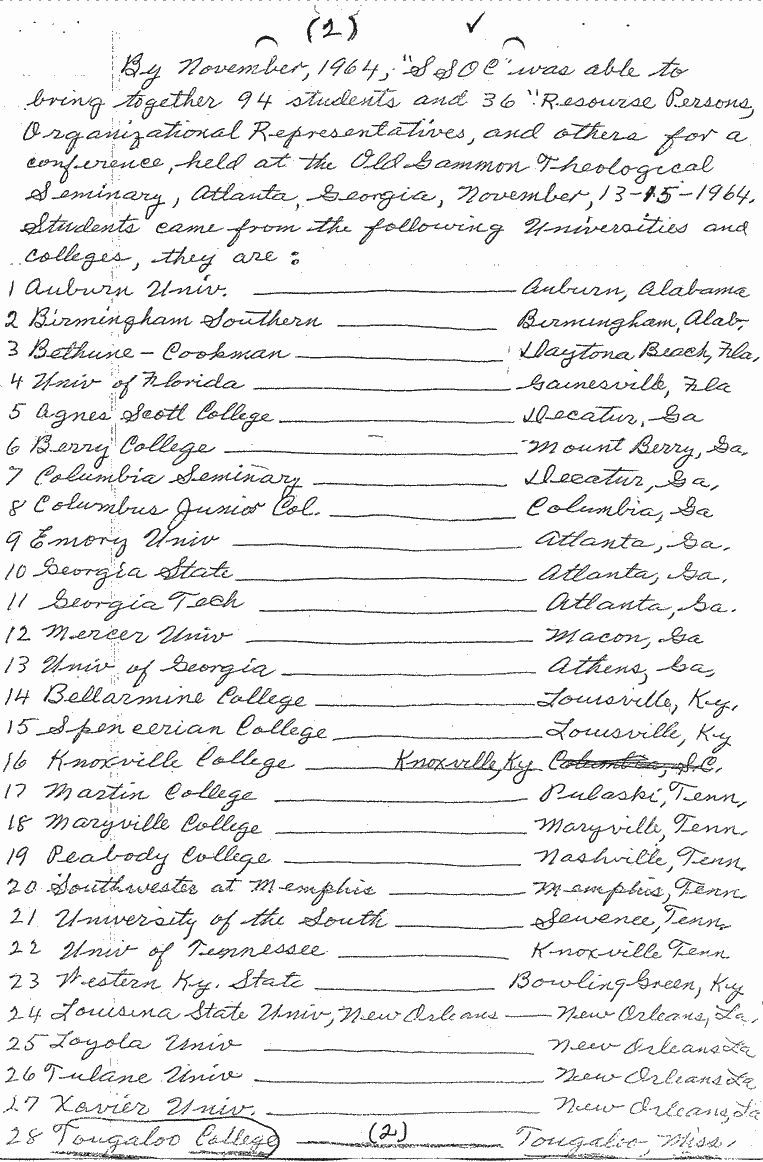 (2) ✓
By November, 1964, "SSOC" was able to
bring together 94 students and 36 "Resourse Persons,
Organizational Representatives, and others for a
conference, held at the Old Gammon Theological
Seminary, Atlanta, Georgia, November, 13-15-1964.
Students came from the following Universities and
colleges, they are:
1 Auburn Univ. Auburn, Alabama
2 Birmingham Southern Birmingham, Alab.
3 Bethune-Cookman Daytona Beach, Fla,
4 Univ of Florida Gainesville, Fla
5 Agnes Scott College Decatur, Ga
6 Berry College Mount Berry, Ga,
7 Columbia Seminary Decatur, Ga,
8 Columbus Junior Col. Columbia, Ga
9 Emory Univ Atlanta, Ga.
10 Georgia State Atlanta, Ga.
11 Georgia Tech Atlanta, Ga.
12 Mercer Univ Macon, Ga
13 Univ of Georgia Athens, Ga,
14 Bellarmine College Louisville, Ky,
15 Spencerian College Louisville, Ky
16 Knoxville College Knoxville, Ky Columbia, S.C.
17 Martin College Pulaski, Tenn,
18 Maryville College Maryville, Tenn.
19 Peabody College Nashville, Tenn.
20 Southwester at Memphis Memphis, Tenn,
21 University of the South Sewenee, Tenn,
22 Univ of Tennessee Knoxville Tenn
23 Western Ky. State Bowling Green, Ky
24 Louisina State Univ, New Orleans New Orleans, La,
25 Loyola Univ New Orleans La
26 Tulane Univ New Orleans La
27 Xavier Univ. New Orleans, La
28 Tougaloo College (2) Tougaloo, Miss.